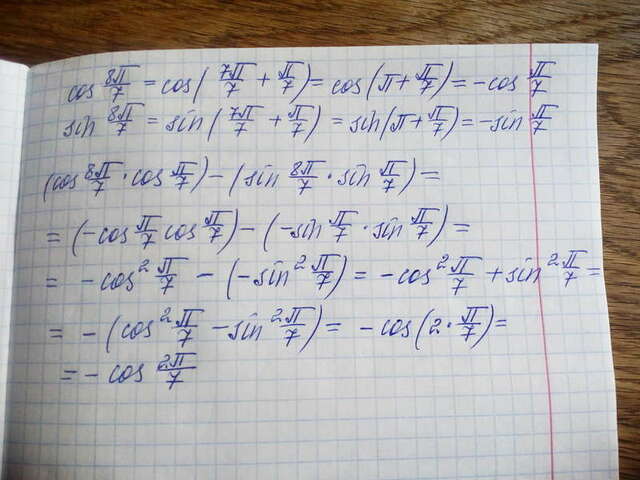 cos 8π/7 = cos(7π/7 + π/7) = cos(π + π/7) = -cos π/7
sin 8π/7 = sin(7π/7 + π/7) = sin(π + π/7) = -sin π/7
(cos 8π/7 · cos π/7) - (sin 8π/7 · sin π/7) =
= (-cos π/7 cos π/7) - (-sin π/7 · sin π/7) =
= -cos² π/7 - (-sin² π/7) = -cos² π/7 + sin² π/7 =
= -(cos² π/7 - sin² π/7) = -cos(2 · π/7) =
= -cos 2π/7